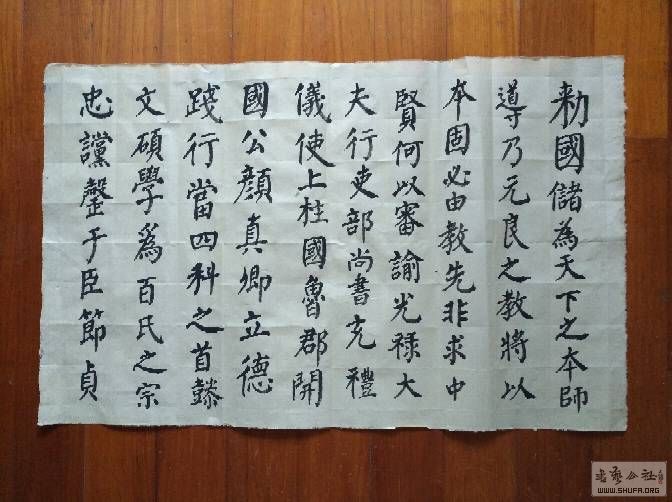 勑國儲為天下之本師
導乃元良之教將以
本固必由教先非求中
賢何以審諭光祿大
夫行吏部尚書充禮
儀使上柱國魯郡開
國公顏真卿立德
踐行當四科之首懿
文碩學爲百氏之宗
忠讜罄于臣節貞
书艺公社
WWW.SHUFA.ORG